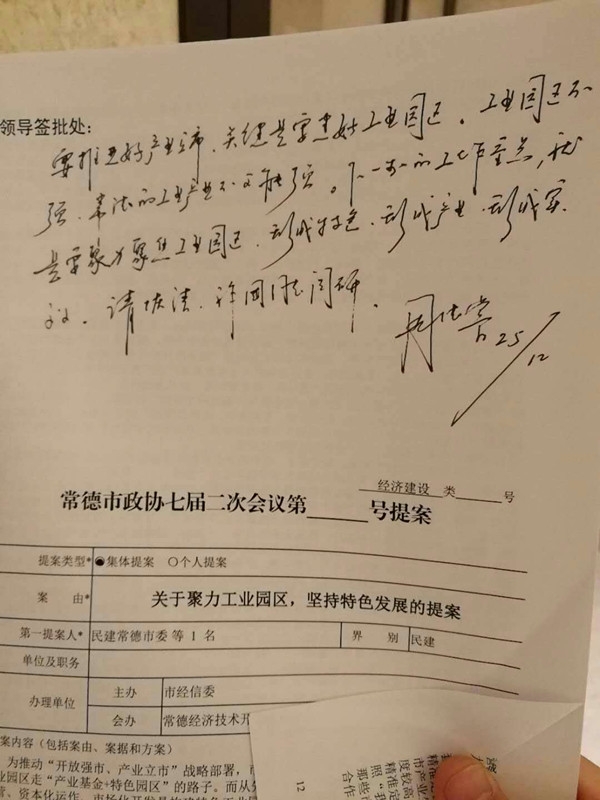 领导签批处:
要推进好产业立市,关键是要建好工业园区。工业园区不
强,常德的工业产业不可能强。下一步的工作重点,就
是要聚力聚焦工业园区,形成特色、形成产业、形成实
力。请 清、 国 同志阅研。
周德 25/12
经济建设 类 号
常德市政协七届二次会议第 号提案
提案类型* 集体提案 个人提案
案 由* 关于聚力工业园区，坚持特色发展的提案
第一提案人* 民建常德市委 等 1 名 界 别 民建
单位及职务
办理单位 主办 市经信委
会办 常德经济技术开
案内容（包括案由、案据和方案）
为推动“开放强市、产业立市”战略部署，
业园区走“产业基金+特色园区”的路子。而从
资本运作、市场化开发
12